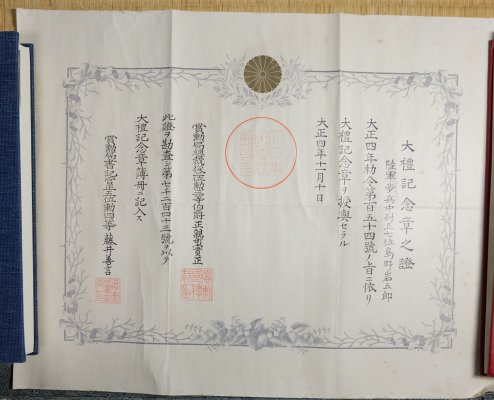 大禮記念章之證
陸軍歩兵中尉正七位島野岩五郎
大正四年勅令第百五十四號ノ旨ニ依リ
大禮記念章ヲ授與セラル
大正四年十一月十日
賞勳局總裁從二位勳一等伯爵正親町實正
此證ヲ勘査シ第七千二百四十三號ヲ以テ
大禮記念章簿冊ニ記入ス
賞勳局書記官正五位勳四等藤井善言